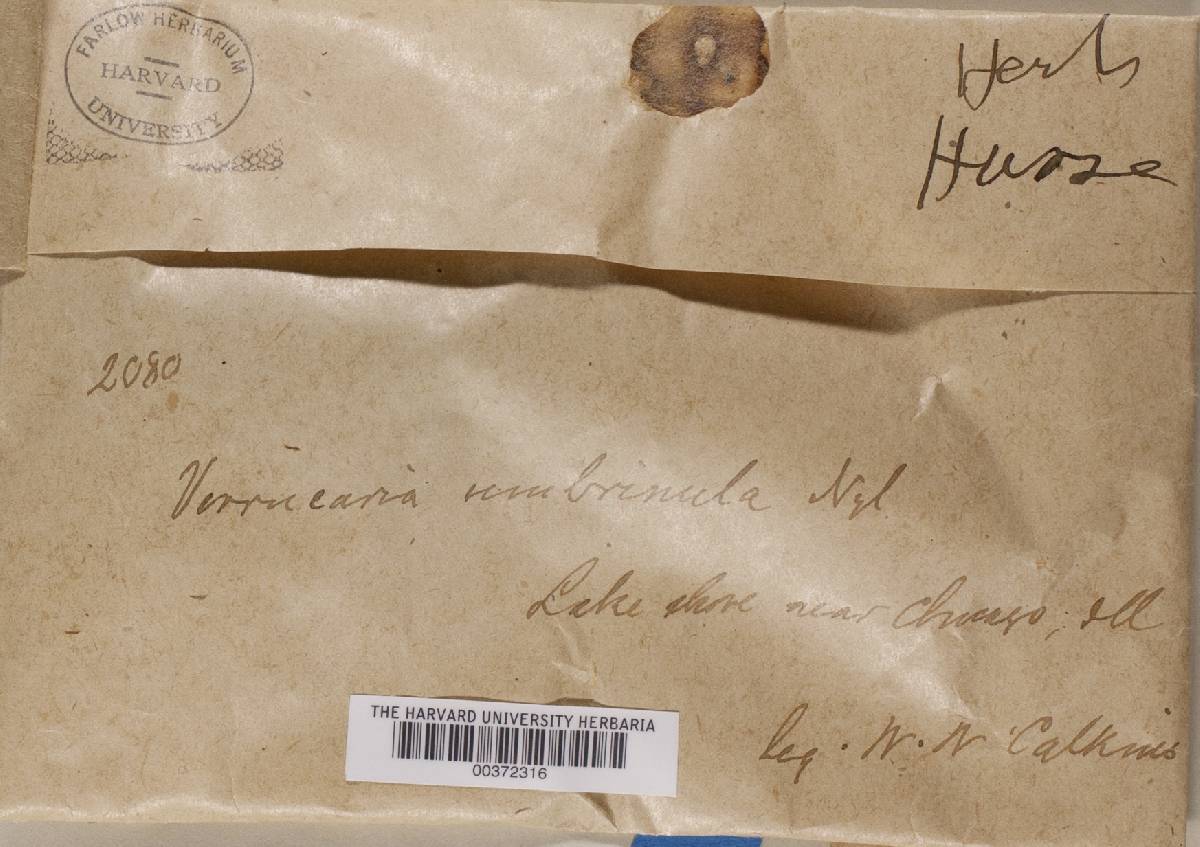 FARLOW HERBARIUM
HARVARD
UNIVERSITY
Herb
Hasse
2080
Verrucaria umbrinula Nyl
Lake shore near Chicago, Ill
leg. W. W Calkins
THE HARVARD UNIVERSITY HERBARIA
00372316